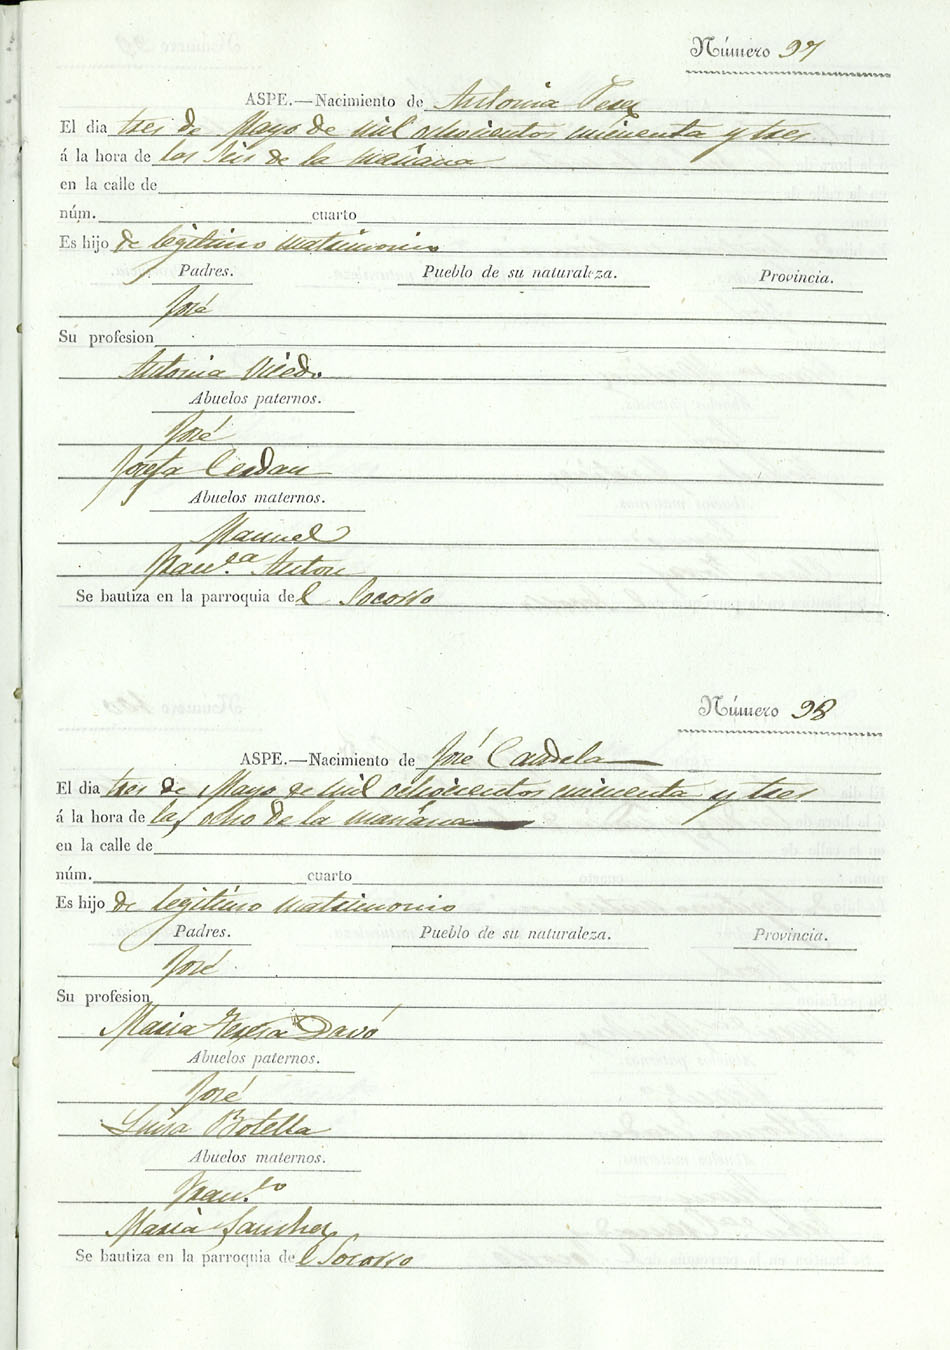 Número 97
ASPE.—Nacimiento de Antonia Perez
El dia tres de Mayo de mil ochocientos cincuenta y tres
á la hora de las seis de la mañana
en la calle de
núm. cuarto
Es hijo de legitimo matrimonio
Padres. Pueblo de su naturaleza. Provincia.
José
Su profesion
Antonia Viedo
Abuelos paternos.
José
Josefa Cerdan
Abuelos maternos.
Manuel
Franca Anton
Se bautiza en la parroquia del Socorro
Número 98
ASPE.—Nacimiento de José Candela
El dia tres de Mayo de mil ochocientos cincuenta y tres
á la hora de las ocho de la mañana
en la calle de
núm. cuarto
Es hijo de legitimo matrimonio
Padres. Pueblo de su naturaleza. Provincia.
José
Su profesion
Maria Teresa Davó
Abuelos paternos.
José
Luisa Botella
Abuelos maternos.
Franco
Maria Sanchez
Se bautiza en la parroquia del Socorro